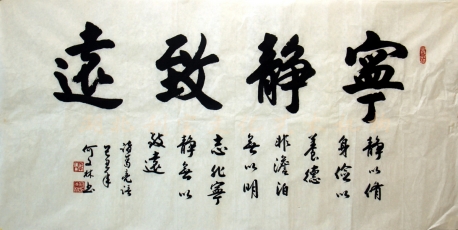 寧靜致遠
靜以脩
身儉以
養德
非澹泊
無以明
志非寧
靜無以
致遠
諸葛亮語